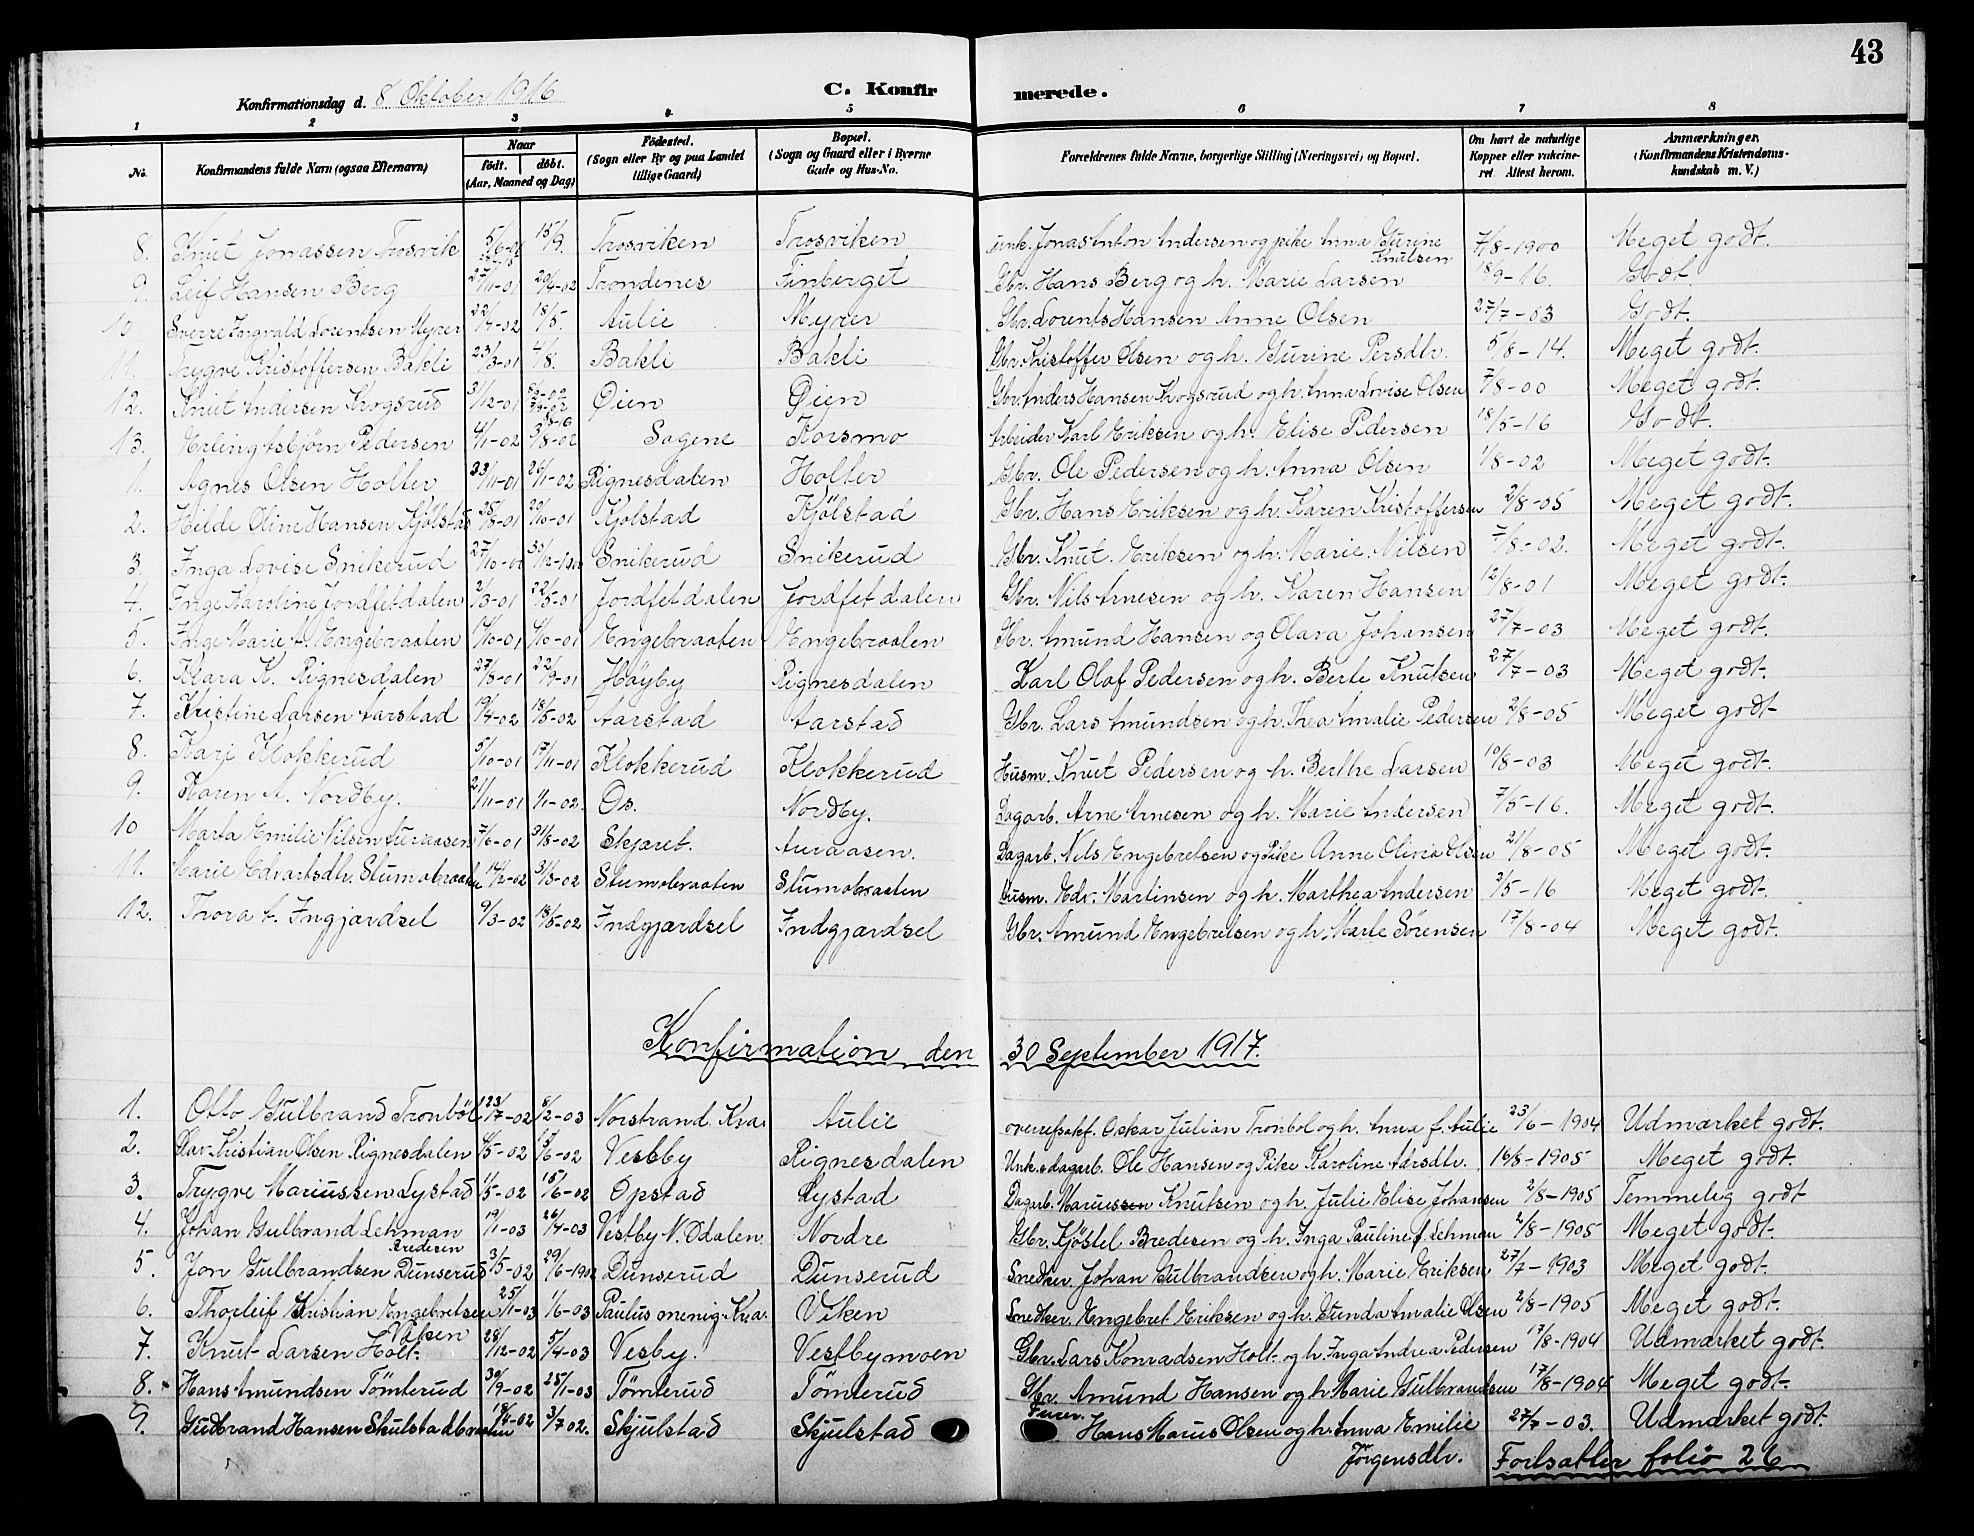 43
Konfirmationsdag d. 8 Oktober 1916 C. Konfirmerede.
1 2 3 4 5 6 7 8
No. Konfirmandens fulde Navn (ogsaa Efternavn) Naar født. døbt. (Aar, Maaned og Dag) Fødested. (Sogn eller By og paa Landet tillige Gaard) Bopæl. (Sogn og Gaard eller i Byerne Gade og Hus-No. Forældrenes fulde Navne, borgerlige Stilling (Næringsvei) og Bopæl. Om havt de naturlige Kopper eller vakcineret. Attest herom. Anmærkninger, (Konfirmandens Kristendomskundskab m. V.)
8. Knut Jonassen Trosvik 5/6-01 15/9. Trosviken Trosviken unk. Jonas Anton Andersen og pike Anna Gurine Knutsen 7/8-1900 Meget godt.
9. Leif Hansen Berg 27/11-01 20/4-02 Trondenes Finberget Gbr. Hans Berg og h. Marie Larsen 18/9-16. Godt.
10 Sverre Ingvald Lorentsen Myrer 22/4-02 18/5. Aulie Myrer Gbr. Lorents Hansen Anne Olsen 27/7-03 Godt.
11. Trygve Kristoffersen Bakli 23/3-01 4/8. Bakli Bakli Gbr. Kristoffer Olsen og h. Gurine Persdtr. 5/8-14. Meget godt.
12. Knut Andersen Krogsrud 31/12-01 Øien Øien Gbr. Anders Hansen Krogsrud og h. Anna Lovise Olsen 7/8-00 Meget godt.
13. Erling Asbjørn Pedersen 4/1-02 3/8-02 Sagene Korsmo Arbeider Karl Eriksen og h. Elise Pedersen 18/5-16 Godt.
1. Agnes Olsen Holter 23/11-01 26/11-02 Rignesdalen Holter Gbr. Ole Pedersen og h. Anna Olsen 1/8-02 Meget godt.
2. Hilde Oline Hansen Kjølstad 25/8-01 20/10-01 Kjolstad Kjølstad Gbr. Hans Eriksen og h. Karen Kristoffersen 2/8-05 Meget godt.
3. Inga Lovise Snikerud 27/10-01 Snikerud Snikerud Gbr. Knut Eriksen og h. Marie Nilsen 7/8-02. Meget godt.
4. Inge Karoline Jordfetdalen 2/3-01 22/5-01 Jordfetdalen Jordfetdalen Gbr. Nils Arnesen og h. Karen Hansen 12/8-01 Meget godt.
5. Inge Marie A. Engebraaten Engebraaten Engebraaten Gbr. Amund Hansen og Olara Johansen 27/7-03 Meget godt.
6. Klara K. Rignesdalen 27/8-01 22/9-01 Høyby Rignesdalen Karl Olaf Pedersen og h. Berte Knutsen 27/7-03 Meget godt.
7. Kristine Larsen Aarstad 19/4-02 18/5-02 Aarstad Aarstad Gbr. Lars Amundsen og h. Thea Amalie Pedersen 2/8-05 Meget godt
8. Kari Klokkerud 5/10-01 17/11-01 Klokkerud Klokkerud Husm. Knut Pedersen og h. Berthe Larsen 10/8-03 Meget godt.
9. Karen A. Nordby. 21/11-01 1/1-02. Os. Nordby. Dagarb. Arne Arnesen og h. Marie Andersen 7/5-16. Meget godt.
10 Marta Emilie Nilsen Auraasen 7/6-01 31/8-02 Skjaret. Auraasen. Dagarb. Nils Engebretsen og Pike Anne Olivia Olsen 21/8-05 Meget godt.
11. Marie Edvartsdtr. Stumobraaten 14/2-02 31/3-02 Stumobraaten Stumobraaten Husm. Edv. Martinsen og h. Marthea Andersen 3/5-16 Meget godt.
12. Thora A. Ingjardsel 9/3-02 18/5-02 Indgjardsel Indgjardsel Gbr. Amund Engebretsen og h. Marte Sørensen 17/8-04 Meget godt.
Konfirmation den 30 September 1917.
1. Otto Gulbrand Tronbøl 23/7-02 8/2-03 Norstrand Kra. Aulie overrefsakf. Oskar Julian Tronbol og h. Anna f. Aulie 23/6-1904 Udmærket godt.
2. Kristian Olsen Rignesdalen Vestby Rignesdalen Unk. dagarb. Ole Hansen og Pike Karoline Aarsdtr. 16/8-1905 Meget godt.
3. Trygve Mariussen Lystad 1/5-02 15/6-02 Opstad Lystad Dagarb. Mariussen Knutsen og h. Julie Elise Johansen 2/8-1905 Temmelig godt
4. Johan Gulbrand Lehman Bredesen 19/1-03 26/4-03 Vestby N. Odalen. Nordre Gbr. Kjøstel Bredesen og h. Inga Pauline f. Lehman 2/8-1905 Meget godt.
5. Jon Gulbrandsen Dunserud 3/5-02 29/6-1902 Dunserud Dunserud Snedker Johan Gulbrandsen og h. Marie Eriksen 27/7-1903 Meget godt.
6. Thorleif Kristian Engebretsen Viken 25/1-03 1/6-03 Paulus menig. Kra. Viken Snedker. Engebret Eriksen og h. Gunda Amalie Olsen 2/8-1905 Meget godt.
7. Knut Larsen Holt. 28/12-02 5/4-03 Vesby. Vestbymoen Gbr. Lars Konradsen Holt og h. Inga Andrea Pedersen 17/8-1904 Udmærket godt.
8. Hans Amundsen Tömterud 30/9-02 25/1-03 Tömterud Tömterud Gbr. Amund Hansen og h. Marie Gulbrandsen 17/8-1904 Meget godt.
9. Gudbrand Hansen Skulstadbraaten 3/7 02. Skjulstad Skjulstad Hans Marius Olsen og h. Anna Emilie Jörgensdtr. 27/7-03. Udmærket godt.
Fortsatter folio 26